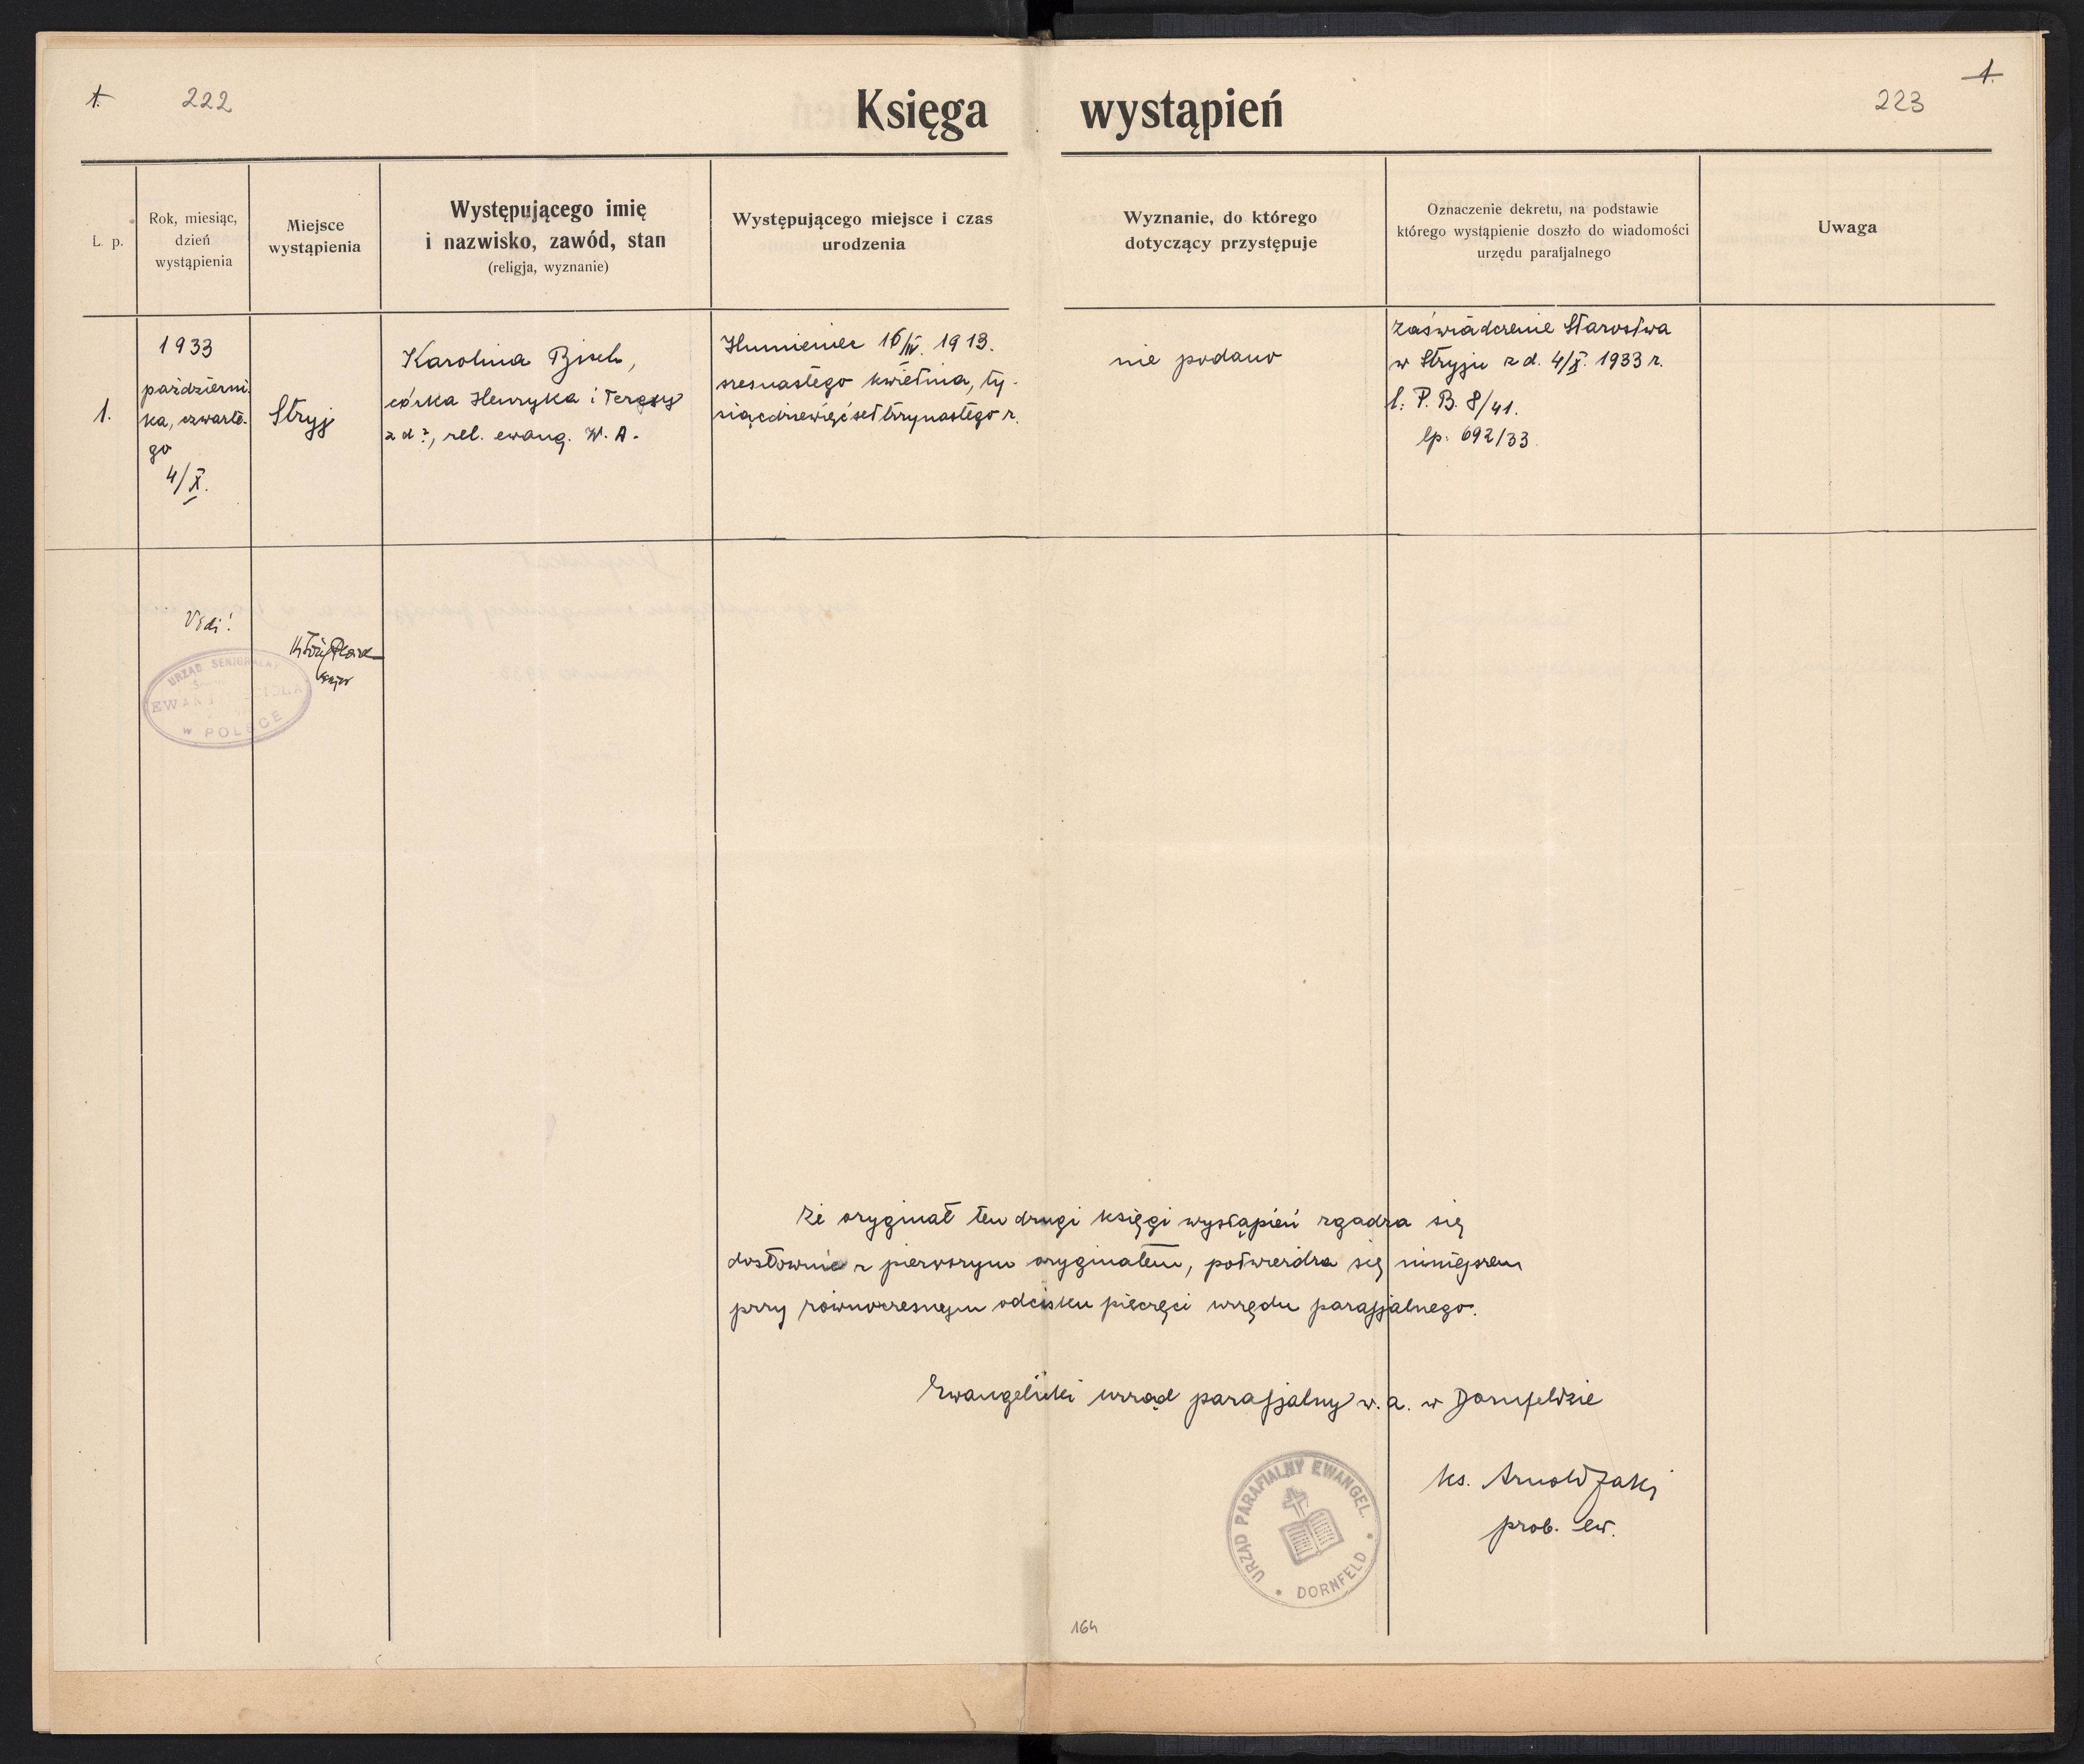 1.
222
Księga wystąpień
223
1.
L. p.
Rok, miesiąc,
dzień
wystąpienia
Miejsce
wystąpienia
Występującego imię
i nazwisko, zawód, stan
(religja, wyznanie)
Występującego miejsce i czas
urodzenia
Wyznanie, do którego
dotyczący przystępuje
Oznaczenie dekretu, na podstawie
którego wystąpienie doszło do wiadomości
urzędu parafjalnego
Uwaga
1.
1933
październi-
ka, czwarte-
go
4/X.
Stryj
Karolina Bisch,
córka Henryka i Teresy
z d?, rel. ewang. W. A.
Humieniec 16/IV. 1913.
szesnastego kwietnia, ty-
siącdziewięćset trzynastego r.
nie podano
Zaświadczenie Starostwa
w Stryju z d. 4/X. 1933 r.
l: P. B. 8/41.
lp. 692/33.
Vidi!
URZĄD SENJORALNY
w POLSCE
Że oryginał ten drugi księgi wystąpień zgadza się
dosłownie z pierwszym oryginałem, potwierdza się niniejszem
przy równoczesnym odcisku pieczęci urzędu parafjalnego.
Ewangelicki urząd parafjalny w. a. w Dornfeldzie
URZĄD PARAFIALNY EWANGEL.
DORNFELD
ks. Arnold Jaki
prob. ew.
164